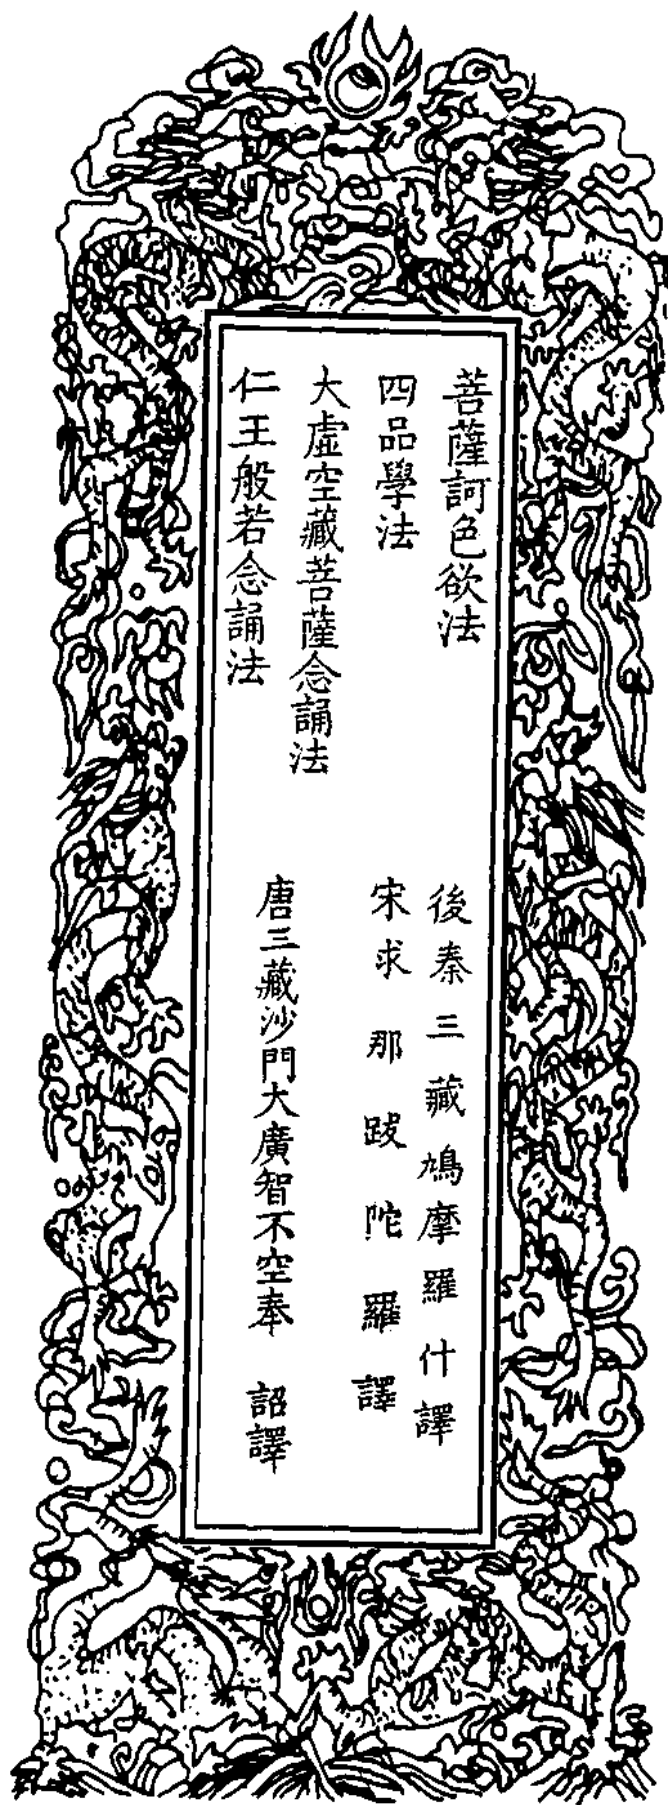 菩薩訶色欲法
後秦三藏鳩摩羅什譯
四品學法
宋求那跋陀羅譯
大虛空藏菩薩念誦法
仁王般若念誦法
唐三藏沙門大廣智不空奉 詔譯